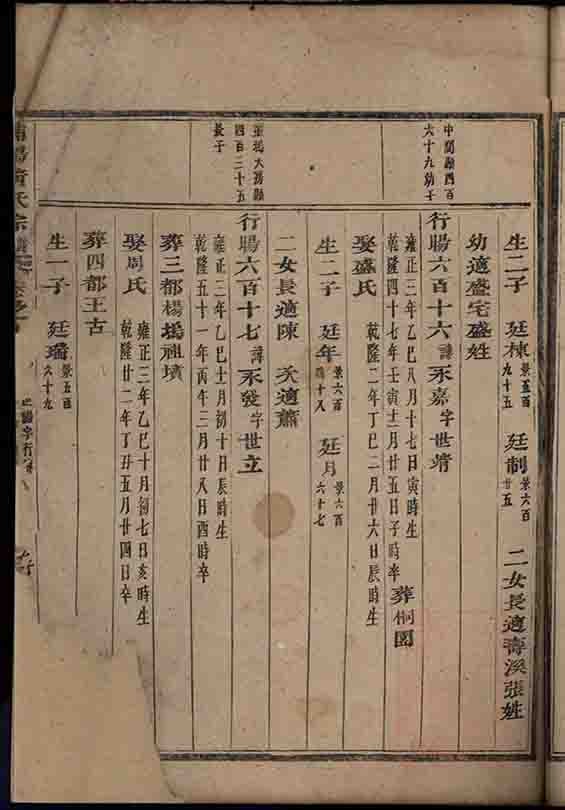 生二子 廷棟 景五百九十五 廷制 景六百廿五 二女長適壽溪張姓
幼適盛宅盛姓
中閣顯四百六十九幼子
行賜六百十六諱永嘉字世靖
雍正三年乙巳八月十七日寅時生
乾隆四十七年壬寅十二月廿五日子時卒 葬桐園
娶盛氏 乾隆二年丁巳二月廿六日辰時生
生二子 廷年 景六百四十八 廷月 景六百六十七
二女長適陳 次適蕭
張塢大房顯四百二十五長子
行賜六百十七諱永發字世立
雍正三年乙巳十月初十日辰時生
乾隆五十一年丙午三月廿八日酉時卒
葬三都楊塢祖墳
娶周氏 雍正三年乙巳十月初七日亥時生
乾隆廿二年丁丑五月廿四日卒
葬四都王古
生一子 廷璠 景五百六十九
氏宗譜
字行